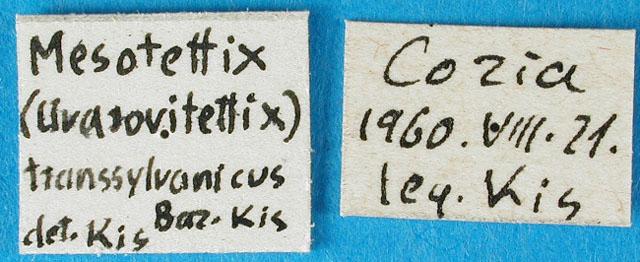 Mesotettix
(Uvarovitettix)
transsylvanicus
Baz. Kis
det. Kis
Cozia
1960. VIII. 21.
leg. Kis